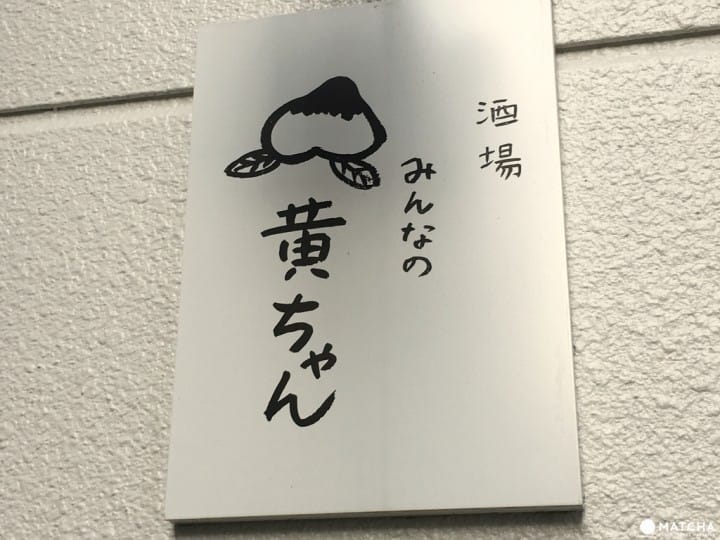 酒場
みんなの
黄ちゃん
MATCHA